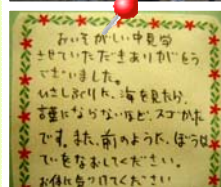 おいそがしい中見学
させていただきありがとう
ございました。
ひさしぶりに、海を見たら、
言葉にならないほど、スゴかった
です。また、前のような、ぼうは
ていをなおしてください。
お体に気をつけてください